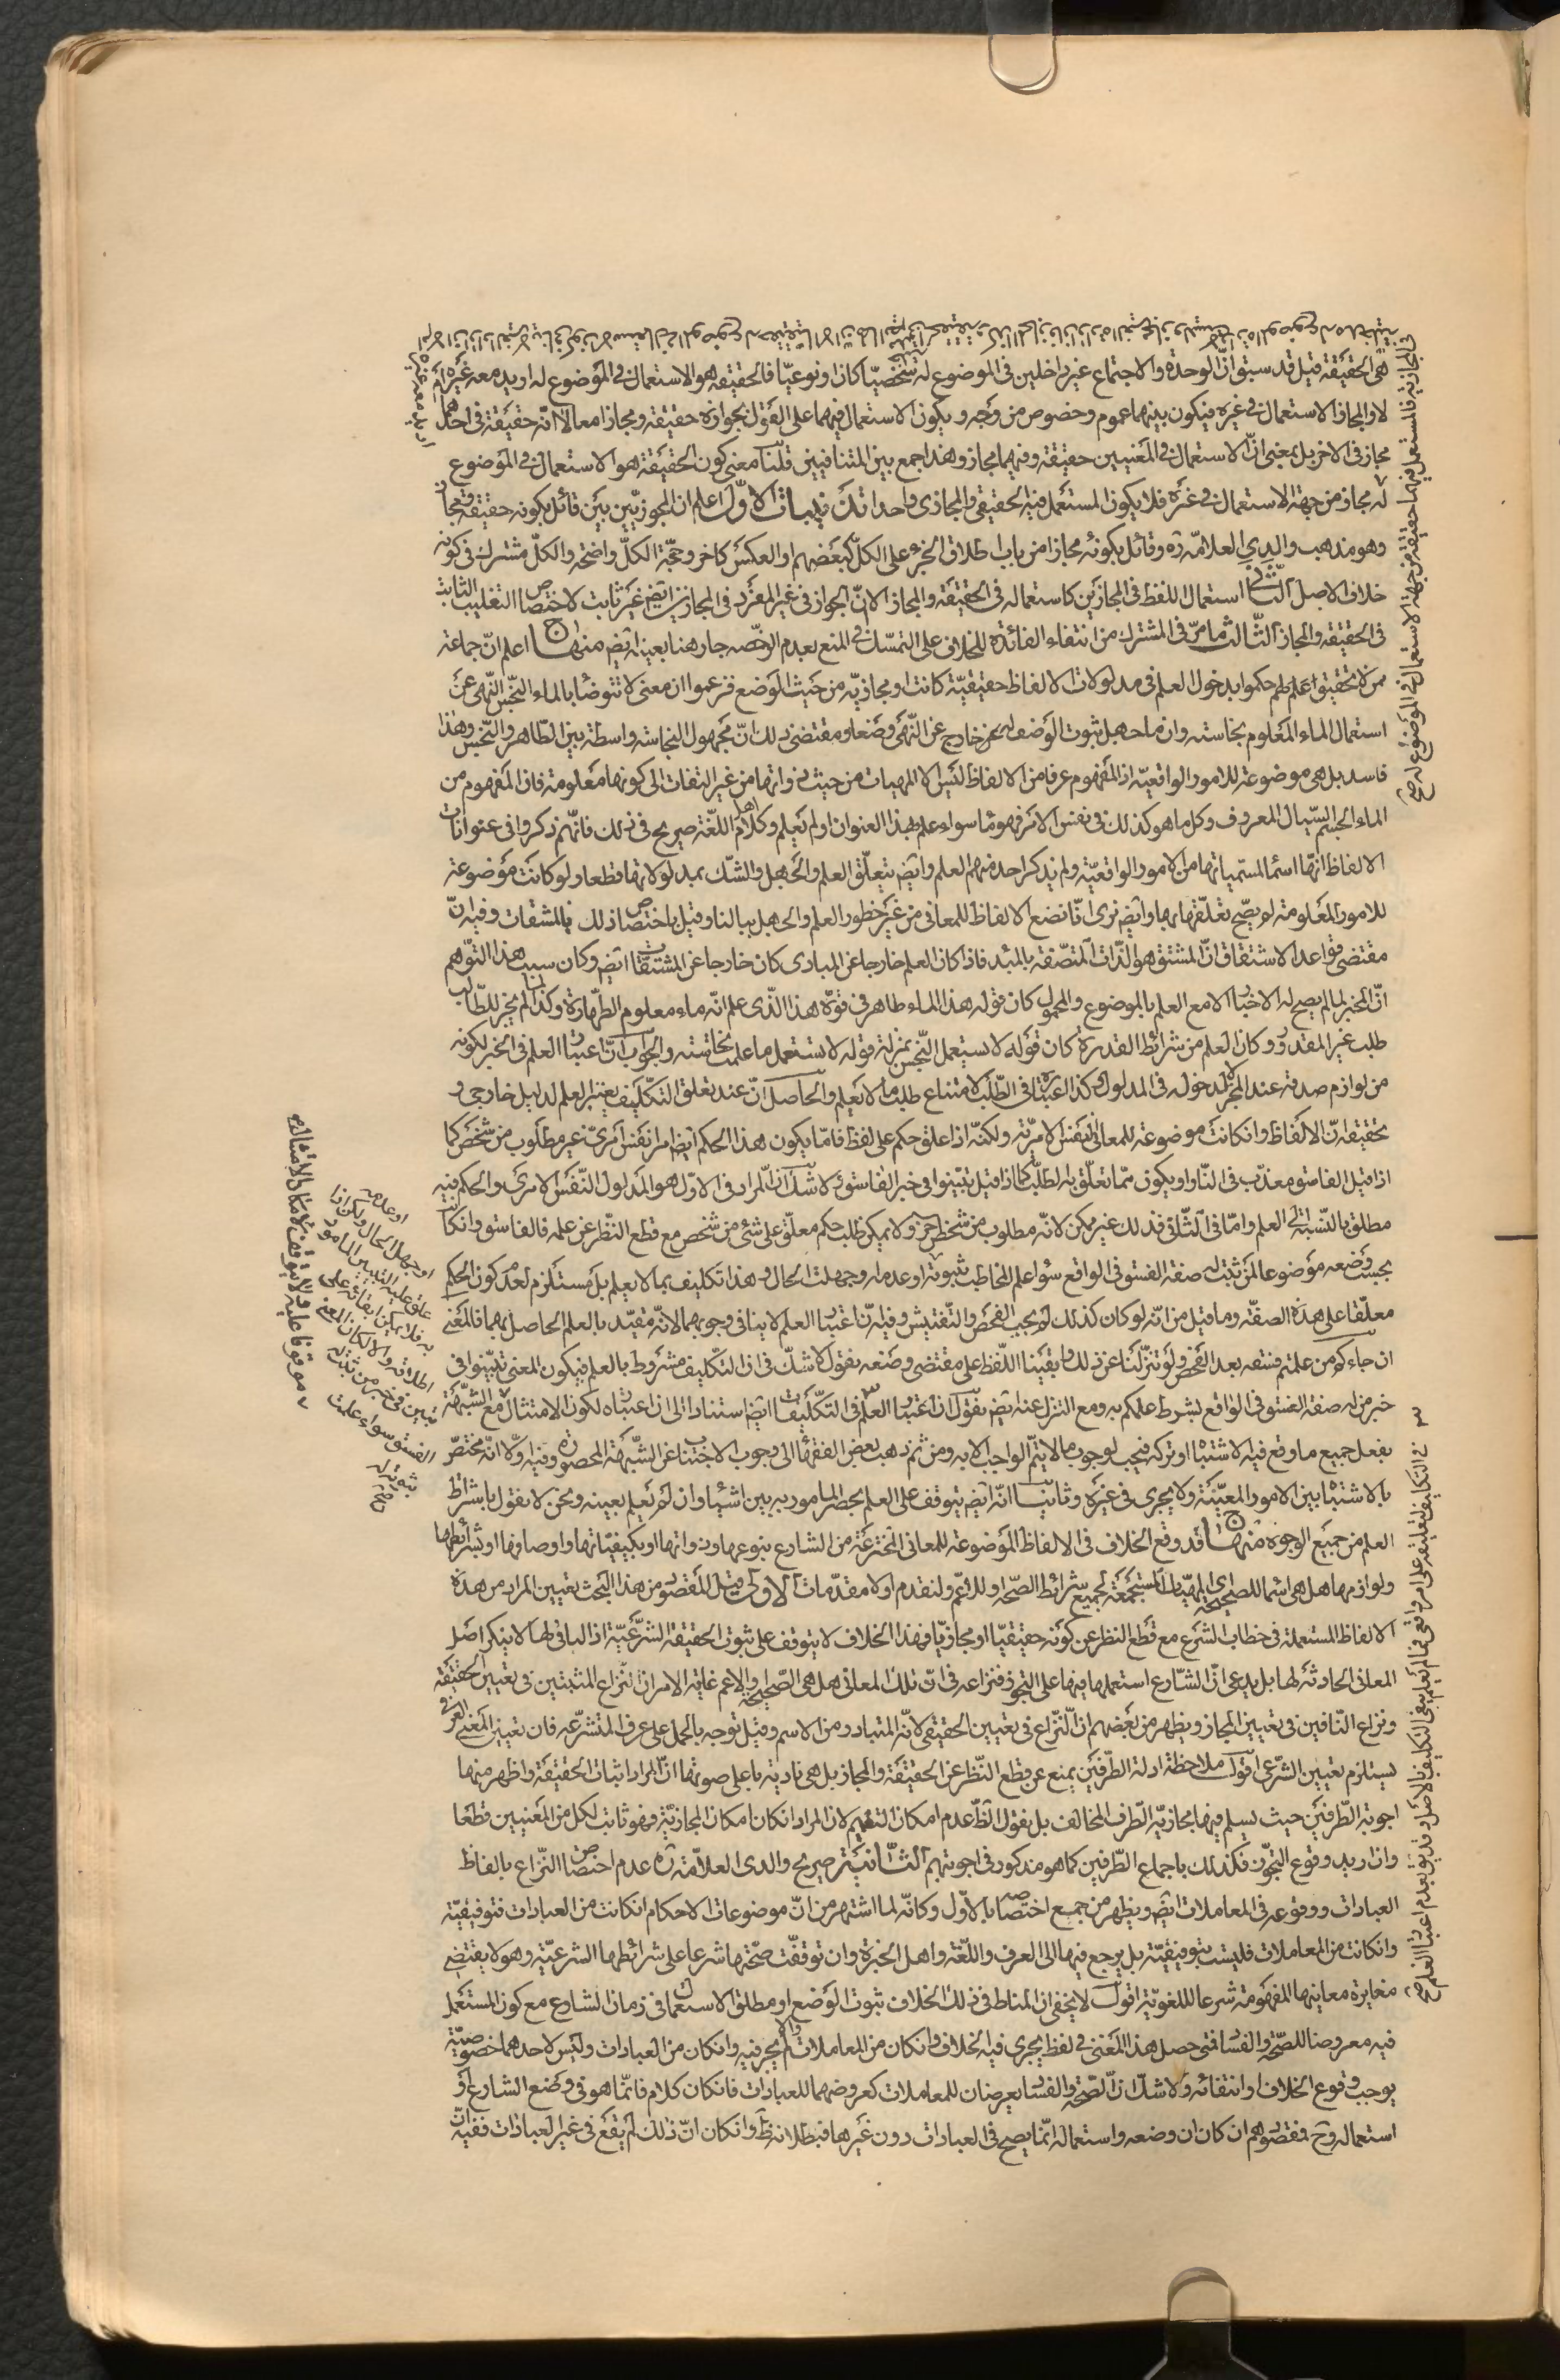 هى الحقيقة قيل قد سبق انّ الوحدة والاجتماع غير داخلين فى الموضوع له شخصيّا كان او نوعيّا فالحقيقة هو الاستعمال فى الموضوع له اريد معه غيره ام
لا والمجاز الاستعمال فى غيره فيكون بينهما عموم وخصوص من وجه ويكون الاستعمال فيهما على القول بجوازه حقيقة ومجازا معا لا انّه حقيقة فى احدهما
مجاز فى الاخر بل بمعنى انّ الاستعمال فى المعنيين حقيقة وفيهما مجاز وهذا جمع بين المتنافيين قلنا معنى كون الحقيقة هو الاستعمال فى الموضوع
له مجاز من جهة الاستعمال فى غيره فلا يكون المستعمل فيه الحقيقى والمجازى واحدا تذنيبات الاوّل اعلم ان المجوزيّين بين قائل بكونه حقيقة ومجازا
وهو مذهب والدى العلامّة ره وقائل بكونه مجازا من باب اطلاق الجزء على الكلّ كبعضهم او العكس كاخر وحجّة الكلّ واضحة والكلّ مشترك فى كونه
خلاف الاصل الثانى استعمال اللفظ فى المجازين كاستعماله فى الحقيقة والمجاز الا انّ الجواز فى غير المفرد فى المجازين ايضا غير ثابت لاختصاص التغليب الثابت
فى الحقيقة والمجاز الثالث ما مرّ فى المشترك من انتفاء الفائدة للخلاف على التمسّك فى المنع بعدم الرخصة جار هنا بعينه ايضا منهاج اعلم انّ جماعة
ممن لا تحقيق لهم حكموا بدخول العلم فى مدلولات الالفاظ حقيقيّة كانت او مجازيّة من حيث الوضع فزعموا ان معنى لا تتوضّأ بالماء النجس النّهى عن
استعمال الماء المعلوم نجاسته وان ما جهل ثبوت الوضع له خارج عن النّهى وضعا ومقتضى ذلك انّ مجهول النجاسة واسطة بين الطّاهر والنّجس وهذا
فاسد بل هى موضوعة للامور الواقعيّة اذ المفهوم عرفا من الالفاظ ليس الا المهيات من حيث ذواتها من غير التفات الى كونها معلومة فان المفهوم من
الماء الجسم السيّال المعروف وكل ما هو كذلك فى نفس الامر فهو ماء سواء علم بهذا العنوان او لم يعلم وكلام اهل اللّغة صريح فى ذلك فانّهم ذكروا فى عنوانات
الالفاظ انّها اسماء لمسمّياتها من الامور الواقعيّة ولم يذكر احد منهم العلم وايضا يتعلّق العلم والجهل والشّك بمدلولاتها قطعا ولو كانت موضوعة
للامور المعلومة لم يصحّ تعلّقها بها وايضا نرى انّا نضع الالفاظ للمعانى من غير خطور العلم والجهل ببالنا وقيل باختصاص ذلك بالمشتقات وفيه انّ
مقتضى قواعد الاشتقاق انّ المشتق هو الذّات المتّصفة بالمبدء فاذا كان العلم خارجا عن المبادى كان خارجا عن المشتقات ايضا وكان سبب هذا التوهّم
انّ المخبر لما لم يصح له الاخبار الا مع العلم بالموضوع والمحمول كان قوله هذا الماء طاهر فى قوّة هذا الّذى علم انّه ماء معلوم الطّهارة وكذا لما لم يجز للطّالب
طلب غير المقدور وكان العلم من شرائط القدرة كان قوله لا تستعمل النّجس بمنزلة قوله لا تستعمل ما علمت نجاسته والجواب انّ اعتبار العلم فى الخبر لكونه
من لوازم صدقه عند المخبر لا لدخوله فى المدلول وكذا اعتباره فى الطّلب لامتناع طلب ما لا يعلم والحاصل انّ عند تعلق التكليف يعتبر العلم لدليل خارجى و
تحقيقه انّ الالفاظ وان كانت موضوعة للمعانى النفس الامريّة ولكنّه اذا علق حكم على لفظ فامّا يكون هذا الحكم ايضا امرا نفس امرىّ غير مطلوب من شخص كما
اذا قيل الفاسق معذّب فى النّار او يكون ممّا تعلّق به الطلب كما اذا قيل تبيّنوا فى خبر الفاسق لا شك انّ المراد فى الاوّل هو المدلول النّفس الامرى والحكم فيه
مطلق بالنّسبة الى العلم وامّا فى الثّانى فذلك غير ممكن لانّه مطلوب من شخص ولا يمكن طلب حكم معلّق على شئ من شخص مع قطع النّظر عن علمه فالفاسق وان كان
بحسب وضعه موضوعا لمن ثبت له صفة الفسق فى الواقع سواء علم المخاطب ثبوته او عدمه او جهلت الحال وهذا تكليف بما لا يعلم بل مستلزم لعدم كون الحكم
معلّقا على هذه الصفة وما قيل من انّه لو كان كذلك لم يجب الفحص والتّفتيش وفيه انّ اعتبار العلم لا ينافى وجوبهما لانّه مقيّد بالعلم الحاصل بهما فالمعنى
ان جاءكم من علمتم فسقه بعد الفحص ولو تنزّلنا عن ذلك وابقينا اللّفظ على مقتضى وضعه نقول لا شكّ فى ان التكليف مشروط بالعلم فيكون المعنى تبيّنوا فى
خبر من له صفة الفسق فى الواقع بشرط علمكم به ومع التنزل عنه ايضا نقول ان اعتبار العلم فى التكليفات ايضا استنادا الى ان اعتباره لكون الامتثال مع الشّبهة
بفعل جميع ما وقع فيه الاشتباه او تركه فيجب لوجوب ما لا يتمّ الواجب الا به ومن ثم ذهب بعض الفقهاء الى وجوب الاجتناب عن الشّبهة المحصورة وفيه اوّلا انّه مختصّ
بالاشتباه بين الامور المعيّنة ولا يجرى فى غيره وثانيا انّه ايضا يتوقف على العلم بحصر المامور به بين اشياء وان لم يعلم بعينه ونحن لا نقول باشتراط
العلم من جميع الوجوه منهاج قد وقع الخلاف فى الالفاظ الموضوعة للمعانى المخترعة من الشارع بنوعها وذواتها او بكيفيّاتها واوصافها او بشرائطها
ولوازمها هل هى اسماء للصحيحة اى المهيّات المستجمعة لجميع شرائط الصّحة او للاعمّ ولنقدم اولا مقدّمات الاولى قيل المقصود من هذا البحث تعيين المراد من هذه
الالفاظ المستعملة فى خطاب الشرع مع قطع النظر عن كونه حقيقيّا او مجازيّا فهذا الخلاف لا يتوقف على ثبوت الحقيقة الشرعيّة اذ النافى لها لا ينكر اصل
المعانى الحادثة لها بل يدعى انّ الشّارع استعملها فيها على التجوز فنزاعه فى انّ تلك المعانى هل هى الصّحيحة او الاعم غاية الامر ان نزاع المثبتين فى تعيين الحقيقة
ونزاع النّافين فى تعيين المجاز ويظهر من بعضهم انّ النّزاع فى تعيين الحقيقى لانّه المتبادر من الاسم وقيل توجه بالحمل على عرف المتشرّعه فان تعيين المعنى العرفى
يستلزم تعيين الشّرعى اقول ملاحظة ادلة الطّرفين يمنع عن قطع النّظر عن الحقيقة والمجاز بل هى نادية باعلى صوتها انّ المراد اثبات الحقيقة واظهر منها
اجوبة الطّرفين حيث يسلم فيها مجازيّة الطّرف المخالف بل نقول الظّ عدم امكان التعميم لان المراد ان كان امكان المجازيّة فهو ثابت لكل من المعنيين قطعا
وان اريد وقوع التجوّز فكذلك باجماع الطّرفين كما هو مذكور فى اجوبتهم الثانية صريح والدى العلاّمة ره عدم اختصاص النّزاع بالفاظ
العبادات ووقوعه فى المعاملات ايضا ويظهر من جمع اختصاصه بالاوّل وكانّه لما اشتهر من انّ موضوعات الاحكام ان كانت من العبادات فتوقيفيّة
وان كانت من المعاملات فليست بتوقيفيّة بل يرجع فيها الى العرف واللّغة واهل الخبرة وان توقفّت صحّتها شرعا على شرائطها الشرعيّة وهو لا يقتضى
مغايرة معانيها المفهومة شرعا لللغويّة اقول لا يخفى ان المناط فى ذلك الخلاف ثبوت الوضع او مطلق الاستعمال فى زمان الشارع مع كون المستعمل
فيه معروضا للصّحة والفساد فمتى حصل هذا المعنى فى لفظ يجرى فيه الخلاف وان كان من المعاملات والا لم يجر فيه وان كان من العبادات وليس لاحدهما خصوصيّة
يوجب وقوع الخلاف او انتفائه ولا شكّ ان الصّحة والفساد يعرضان للمعاملات كعروضهما للعبادات فان كان كلام فانّما هو فى وضع الشارع او
استعماله وح فمقصودهم ان كان ان وضعه واستعماله انّما يصح فى العبادات دون غيرها فبطلانه ظ وان كان انّ ذلك لم يقع فى غير العبادات ففيه انّ
فى المجازية فالمستعمل فيهما حقيقة من جهة الاستعمال فى الموضوع له صح
او عدمه
او جهل الحال ولكن اذا
علق عليه التبيين المامور
به فلا يمكن ابقائه على
اطلاقه والا لكان المعنى
تبين فى خبر من ثبت له
الفسق سواء علمت
ثبوته له
فى التكاليف لتعليقه على امر واقعى فما لم يعلم ينفى التكليف بالاصل وقد يق بعدم اعتبار العلم صح